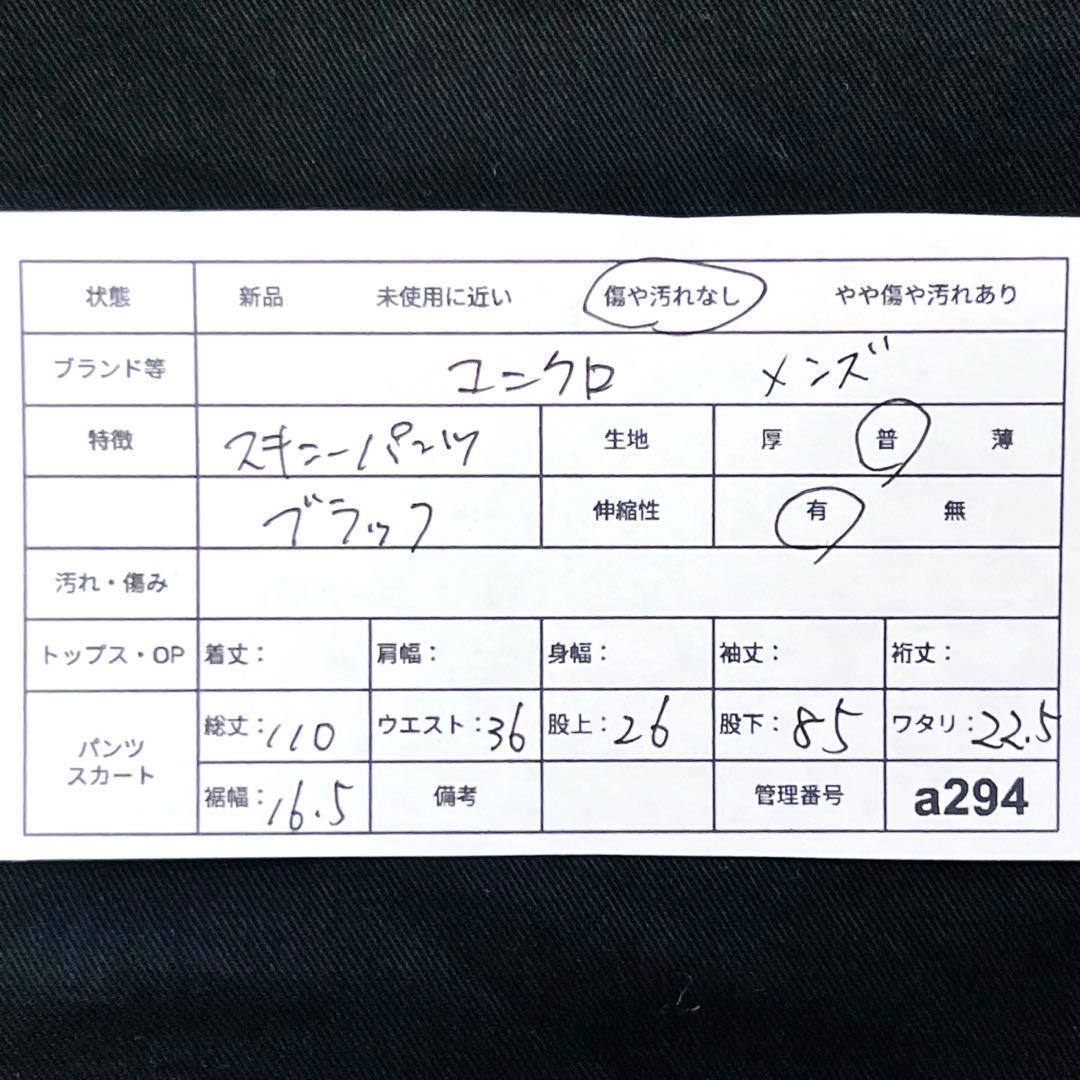 状態 新品 未使用に近い 傷や汚れなし やや傷や汚れあり
ブランド等 ユニクロ メンズ
特徴 スキニーパンツ 生地 厚 普 薄
ブラック 伸縮性 有 無
汚れ・傷み
トップス・OP 着丈: 肩幅: 身幅: 袖丈: 裄丈:
パンツ スカート 総丈:110 ウエスト:36 股上:26 股下:85 ワタリ:22.5
裾幅:16.5 備考 管理番号 a294